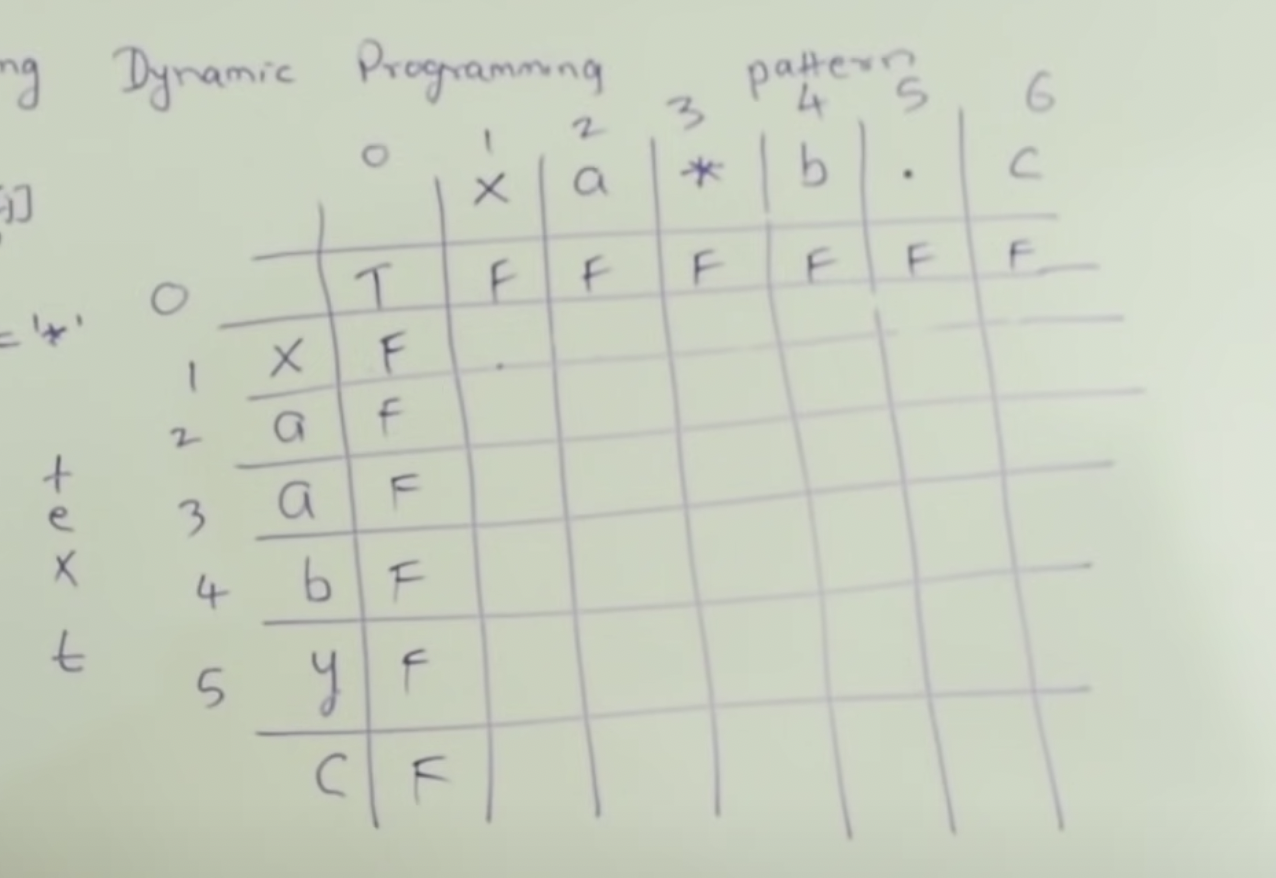 ng Dynamic Programming pattern
0 1 2 3 4 5 6
x a * b . c
j]
0 T F F F F F F
= '*'
1 x F
2 a F
3 a F
4 b F
5 y F
c F
text